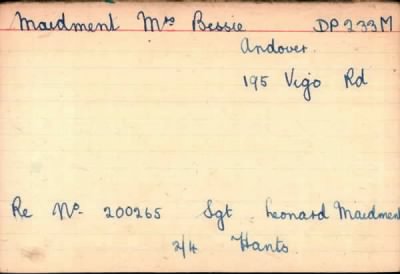 Maidment Mrs Bessie DP 233M
Andover.
195 Vigo Rd
Re No. 200265 Sgt Leonard Maidment
2/4 Hants.